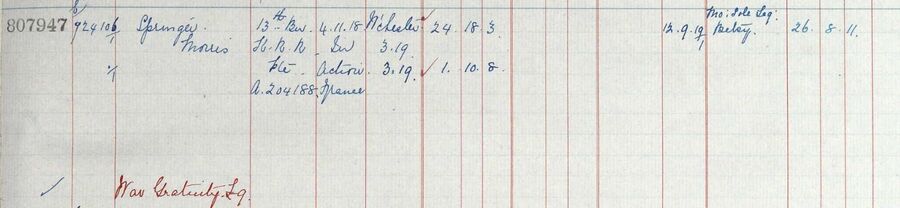 E Mo: Sole Leg:
807947 924106/1 Springer 13th Bn 4.11.18 Wchester ✓ 24. 18. 3 12.9.19 Betsy. 26. 8. 11.
Morris H.R.R. In 3.19.
1/1 Pte Action. 3.19. ✓ 1. 10. 8.
A.204188. France
✓ War Gratuity £9.